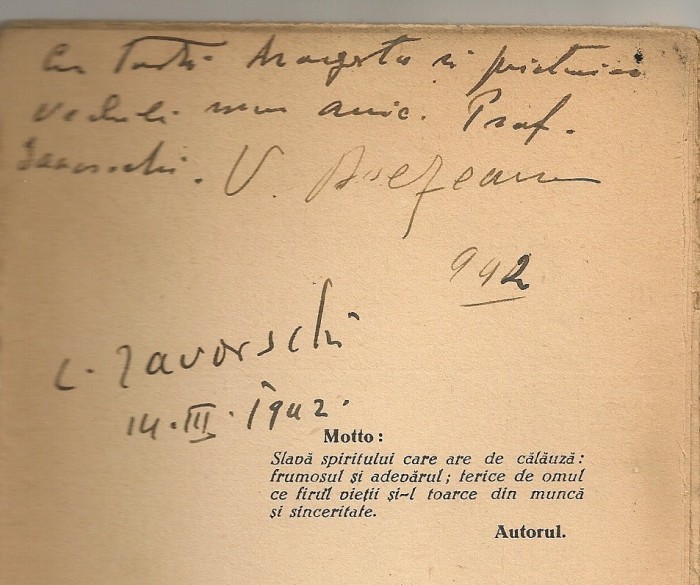 Cu toată dragostea și prietenia
vechiului meu amic. Prof.
Iavorschi. V.
942
C. Iavorschi
14.III.1942.
Motto:
Slavă spiritului care are de călăuză:
frumosul și adevărul; ferice de omul
ce firul vieții și-l toarce din muncă
și sinceritate.
Autorul.